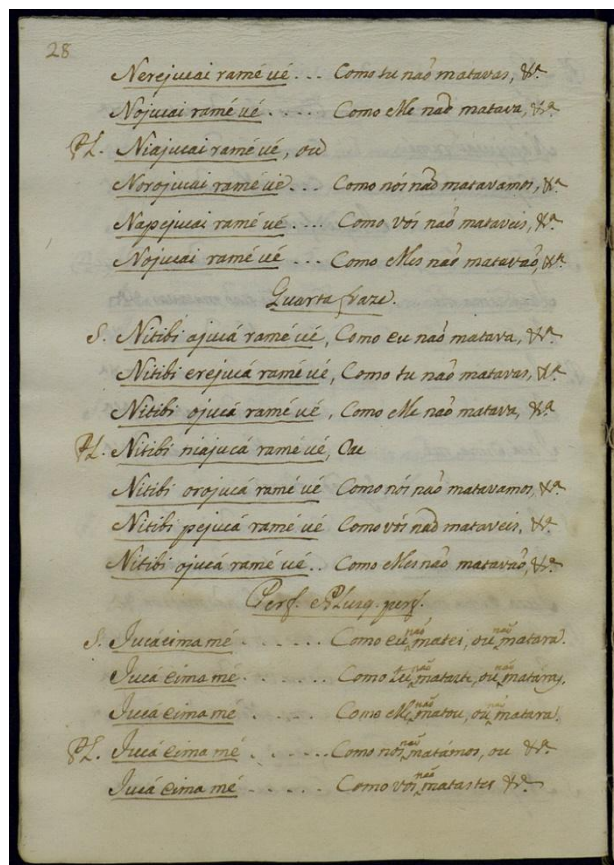 28
Nerejucai ramé ué . . . Como tu naõ matavas, &ª
Nojucai ramé ué . . . . Como elle naõ matava, &ª
Pl. Niajucai ramé ué, ou
Norojucai ramé ué . . . Como nós naõ matavamos, &ª
Napejucai ramé ué . . . . Como vós naõ mataveis, &ª
Nojucai ramé ué . . . . Como elles naõ matavaõ, &ª
Quarta fraze.
S. Nitibi ajucá ramé ué, Como eu naõ matava, &ª
Nitibi erejucá ramé ué, Como tu naõ matavas, &ª
Nitibi ojucá ramé ué, Como elle naõ matava, &ª
Pl. Nitibi niajucá ramé ué,
Nitibi orojucá ramé ué Como nós naõ matavamos, &ª
Nitibi pejucá ramé ué Como vós naõ mataveis, &ª
Nitibi ojucá ramé ué . . Como elles naõ matavaõ, &ª
Perf. e Plusq. perf.
S. Jucá eima mé . . . . . . Como eu não matei, ou não matara.
Jucá eima mé . . . . . Como tu não mataste, ou não matáras,
Jucá eima mé . . . . . Como elle não matou, ou não matara,
Pl. Jucá eima mé . . . . . . Como nós não matámos, ou &ª
Jucá eima mé . . . . . Como vós não matastes &ª